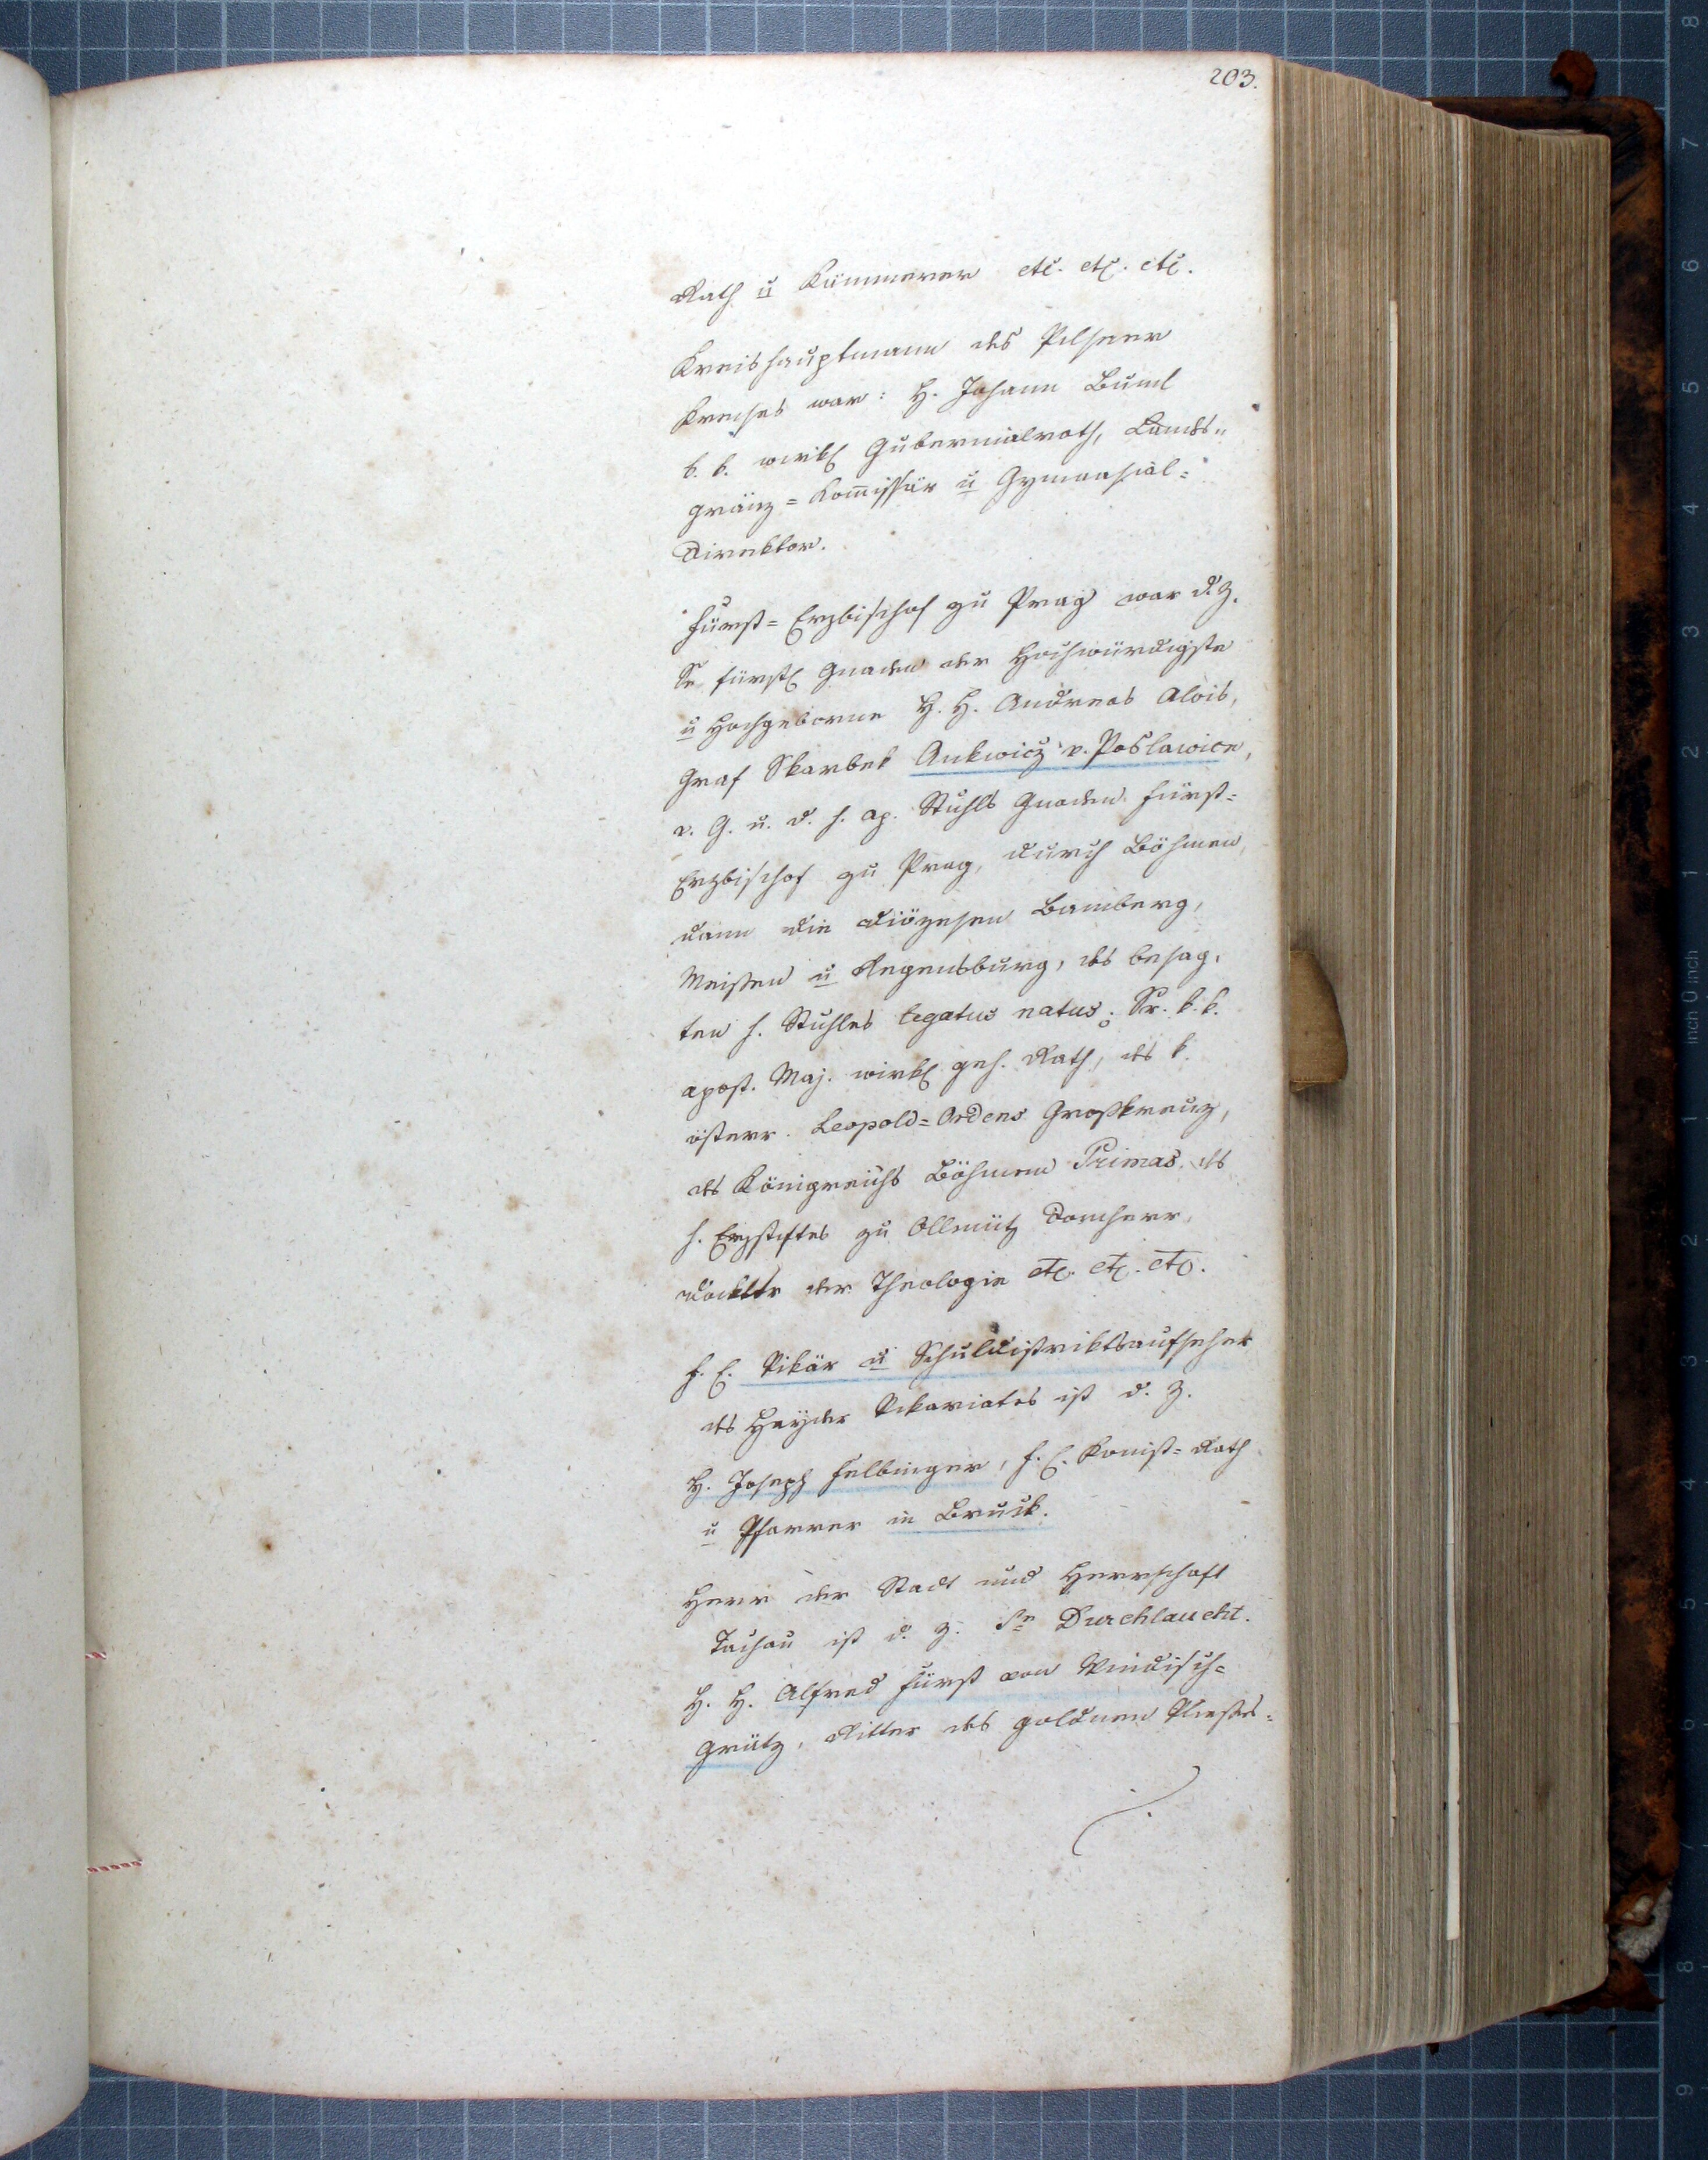 203.
Rath u Kämmerer etc. etc. etc.
Kreishauptmann des Pilsner
Kreises war: H. Johann Buml
k. k. wirkl Gubernialrath, Lands-
gränz=Komissär u Gymnasial=
Direktor.
Fürst=Erzbischof zu Prag war d. Z.
Se fürstl Gnaden der Hochwürdigste
u Hochgeborne H. H. Andreas Alois,
Graf Skarbek Ankwicz v. Poslawice,
v. G. u. d. h. ap. Stuhls Gnaden Fürst=
Erzbischof zu Prag, durch Böhmen,
dann die Diözesen Bamberg,
Meißen u Regensburg, des besag,
ten h. Stuhles legatus natus; Sr. k. k.
apost. Maj. wirkl geh. Rath, des k.
österr. Leopold=Ordens Großkreuz,
des Königreichs Böhmen Primas, des
h. Erzstiftes zu Ollmütz Domherr,
Docktor der Theologie etc. etc. etc.
f. e. Vikär u Schuldistriktsaufseher
des Hayder Vikariates ist d. Z.
H. Joseph Felbinger, f. e. Konist=Rath
u Pfarrer in Bruck.
Herr der Stadt und Herrschaft
Tachau ist d. Z. Se Durchlaucht.
H. H. Alfred Fürst von Windisch=
grätz, Ritter des goldnen Vließes=